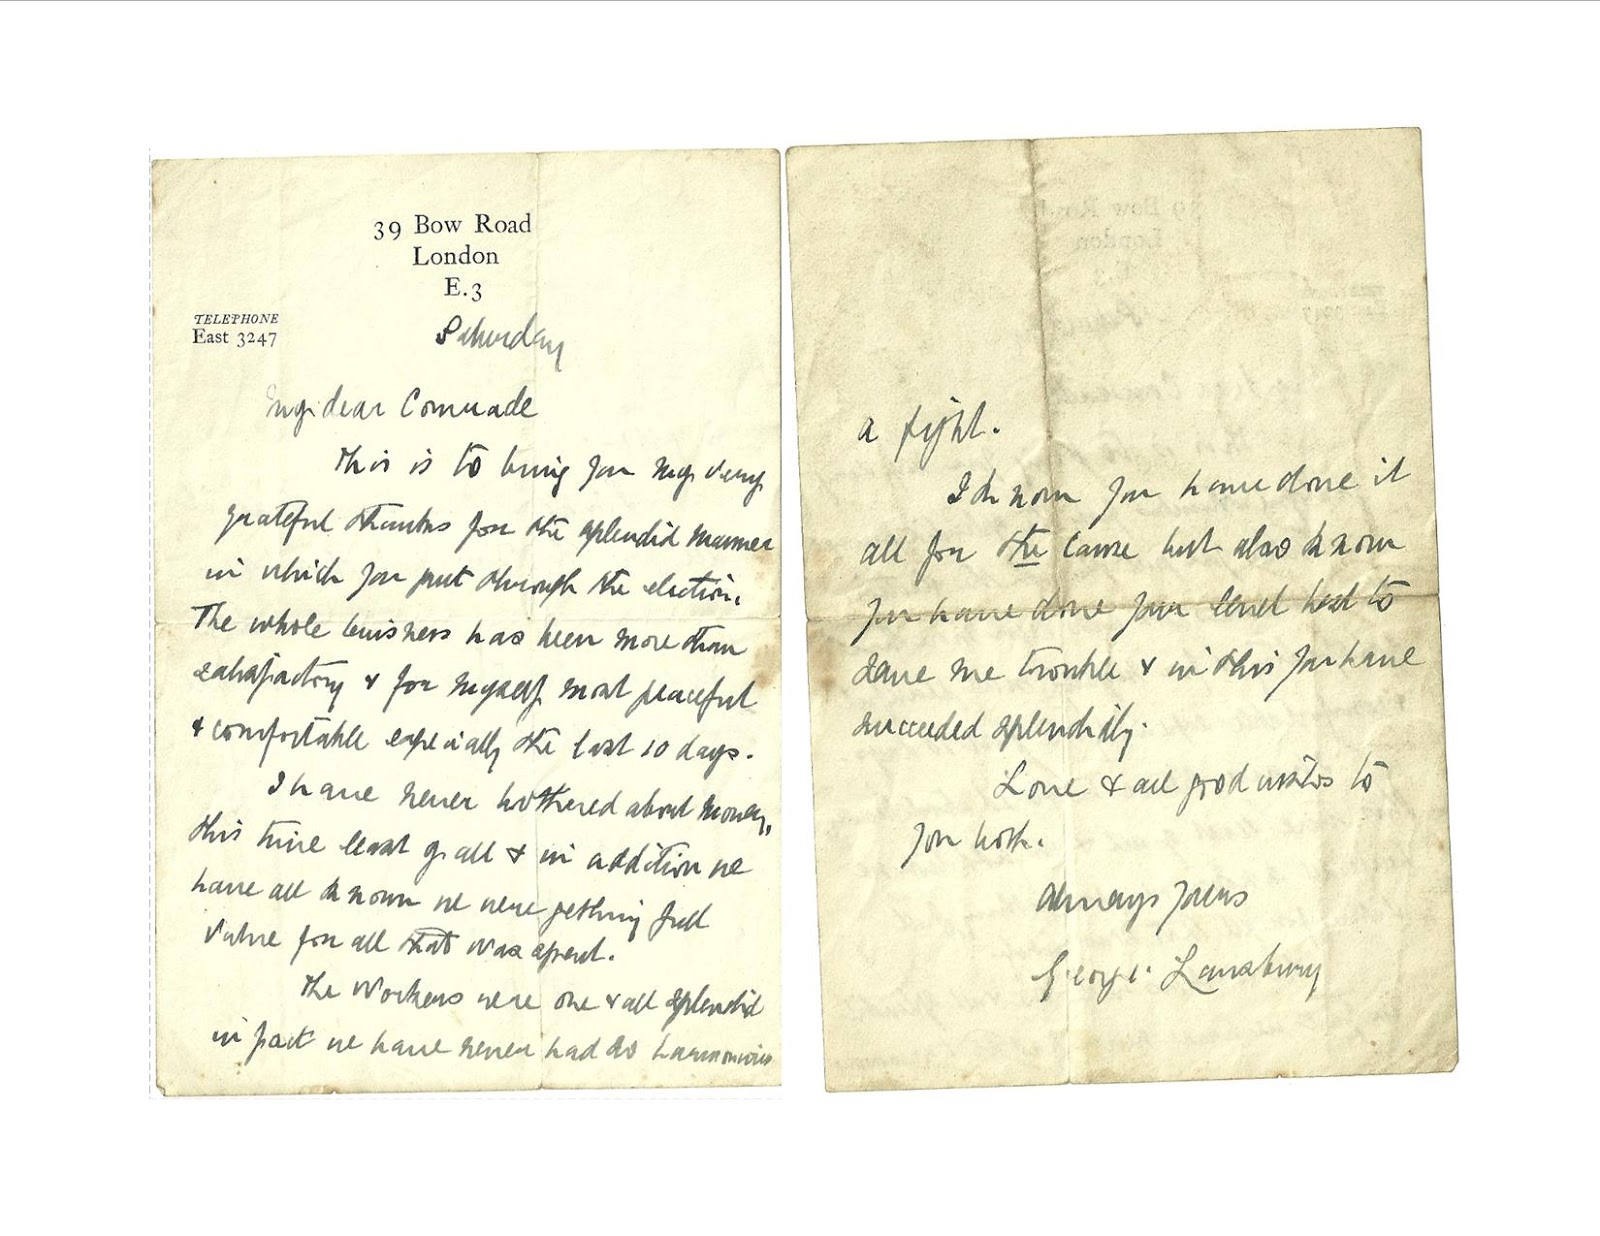 39 Bow Road
London
E.3
TELEPHONE
East 3247
Saturday
My dear Comrade
This is to bring you my very
grateful thanks for the splendid manner
in which you put through the election.
The whole business has been more than
satisfactory & for myself most peaceful
& comfortable especially the last 10 days.
I have never bothered about money,
this time least of all & in addition we
have all known we were getting full
value for all that was spent.
The workers were one & all splendid
in fact we have never had so harmonious
a fight.
I know you have done it
all for the cause but also know
you have done your level best to
save me trouble & in this you have
succeeded splendidly.
Love & all good wishes to
you both.
Always yours
George Lansbury